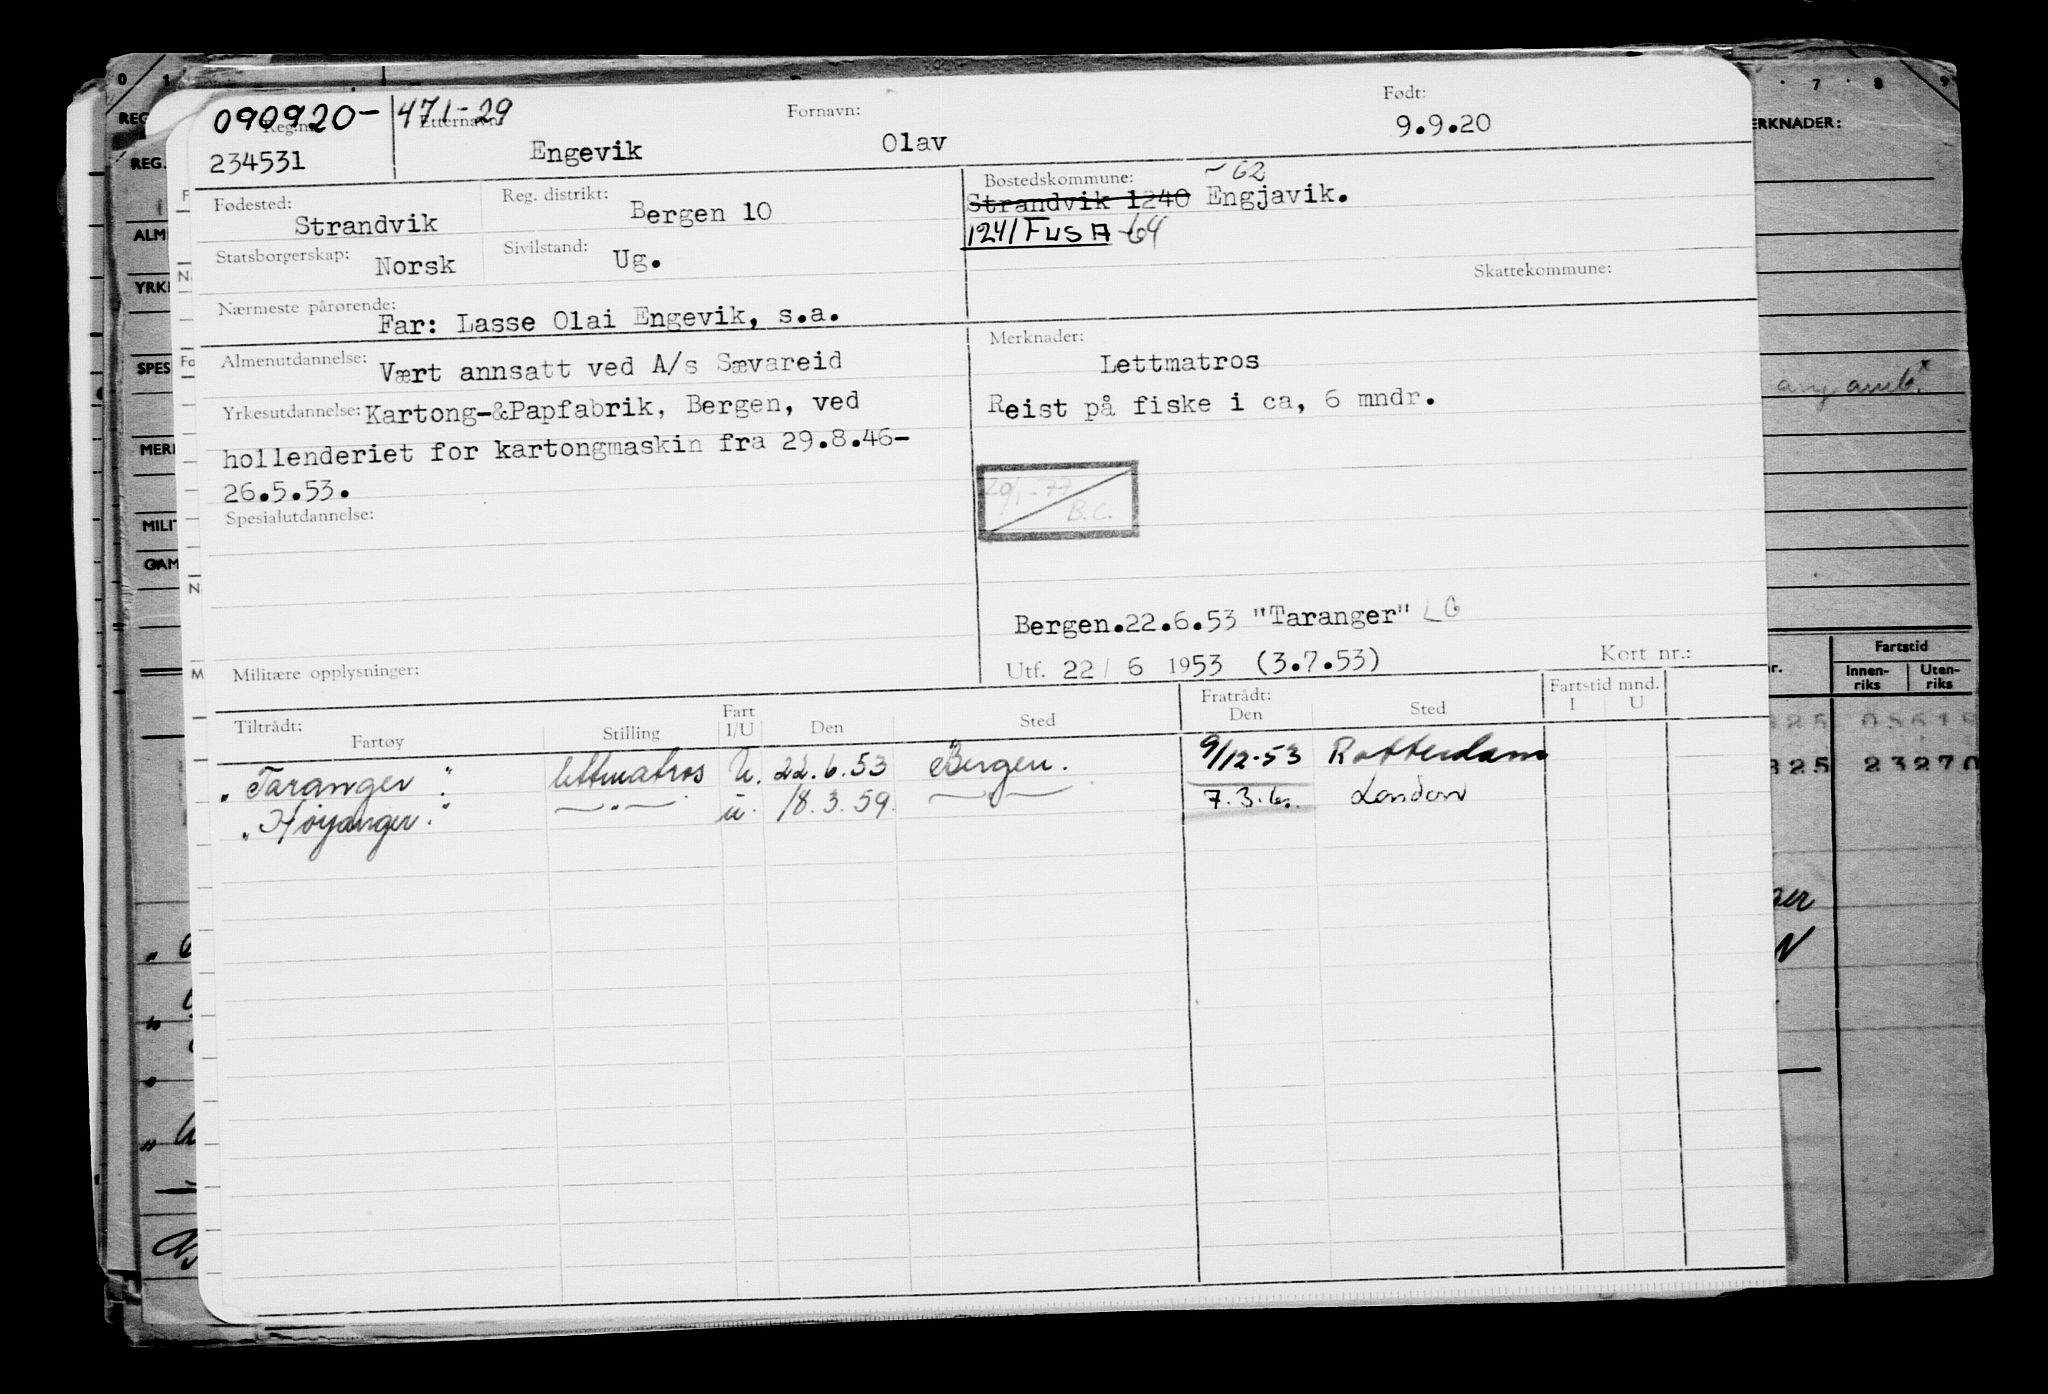 090920- 471-29
Reg.nr. Etternavn: Fornavn: Født:
234531 Engevik Olav 9.9.20
Fødested: Strandvik Reg. distrikt: Bergen 10
Bostedskommune: -62
Strandvik 1240 Engjavik.
1241 FUSA -64
Statsborgerskap: Norsk Sivilstand: Ug.
Skattekommune:
Nærmeste pårørende: Far: Lasse Olai Engevik, s.a.
Almenutdannelse: Vært annsatt ved A/s Sævareid
Yrkesutdannelse: Kartong-&Papfabrik, Bergen, ved
hollenderiet for kartongmaskin fra 29.8.46-
26.5.53.
Spesialutdannelse:
Merknader:
Lettmatros
Reist på fiske i ca, 6 mndr.
20/1-77
B.C.
Bergen.22.6.53 "Taranger" LG
Militære opplysninger:
Utf. 22/ 6 1953 (3.7.53) Kort nr.:
Tiltrådt: Fartøy Stilling Fart I/U Den Sted Fratrådt: Den Sted Fartstid mnd. I U
"Taranger" lettmatros U. 22.6.53 Bergen. 9/12-53 Rotterdam
"Høyanger." —"— u. 18.3.59. —"— 7.3.60. London
0 1 7 8 9
REG.
ALM
YRK
SPES
MERKNADER:
MILIT
GAM
Fartstid
Innen-
riks
Uten-
riks
23270